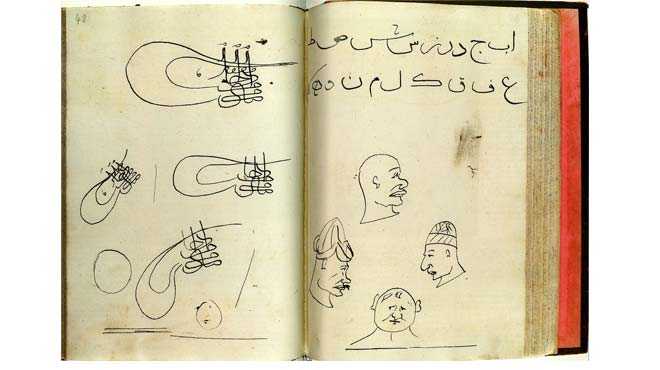 48
ا ب ج د ر ز س ش ص ط
ع ف ق ك ل م ن